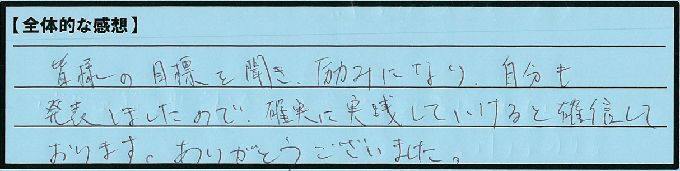 【全体的な感想】
皆様の目標を聞き、励みになり、自分も
発表しましたので、確実に実践していけると確信して
おります。ありがとうございました。